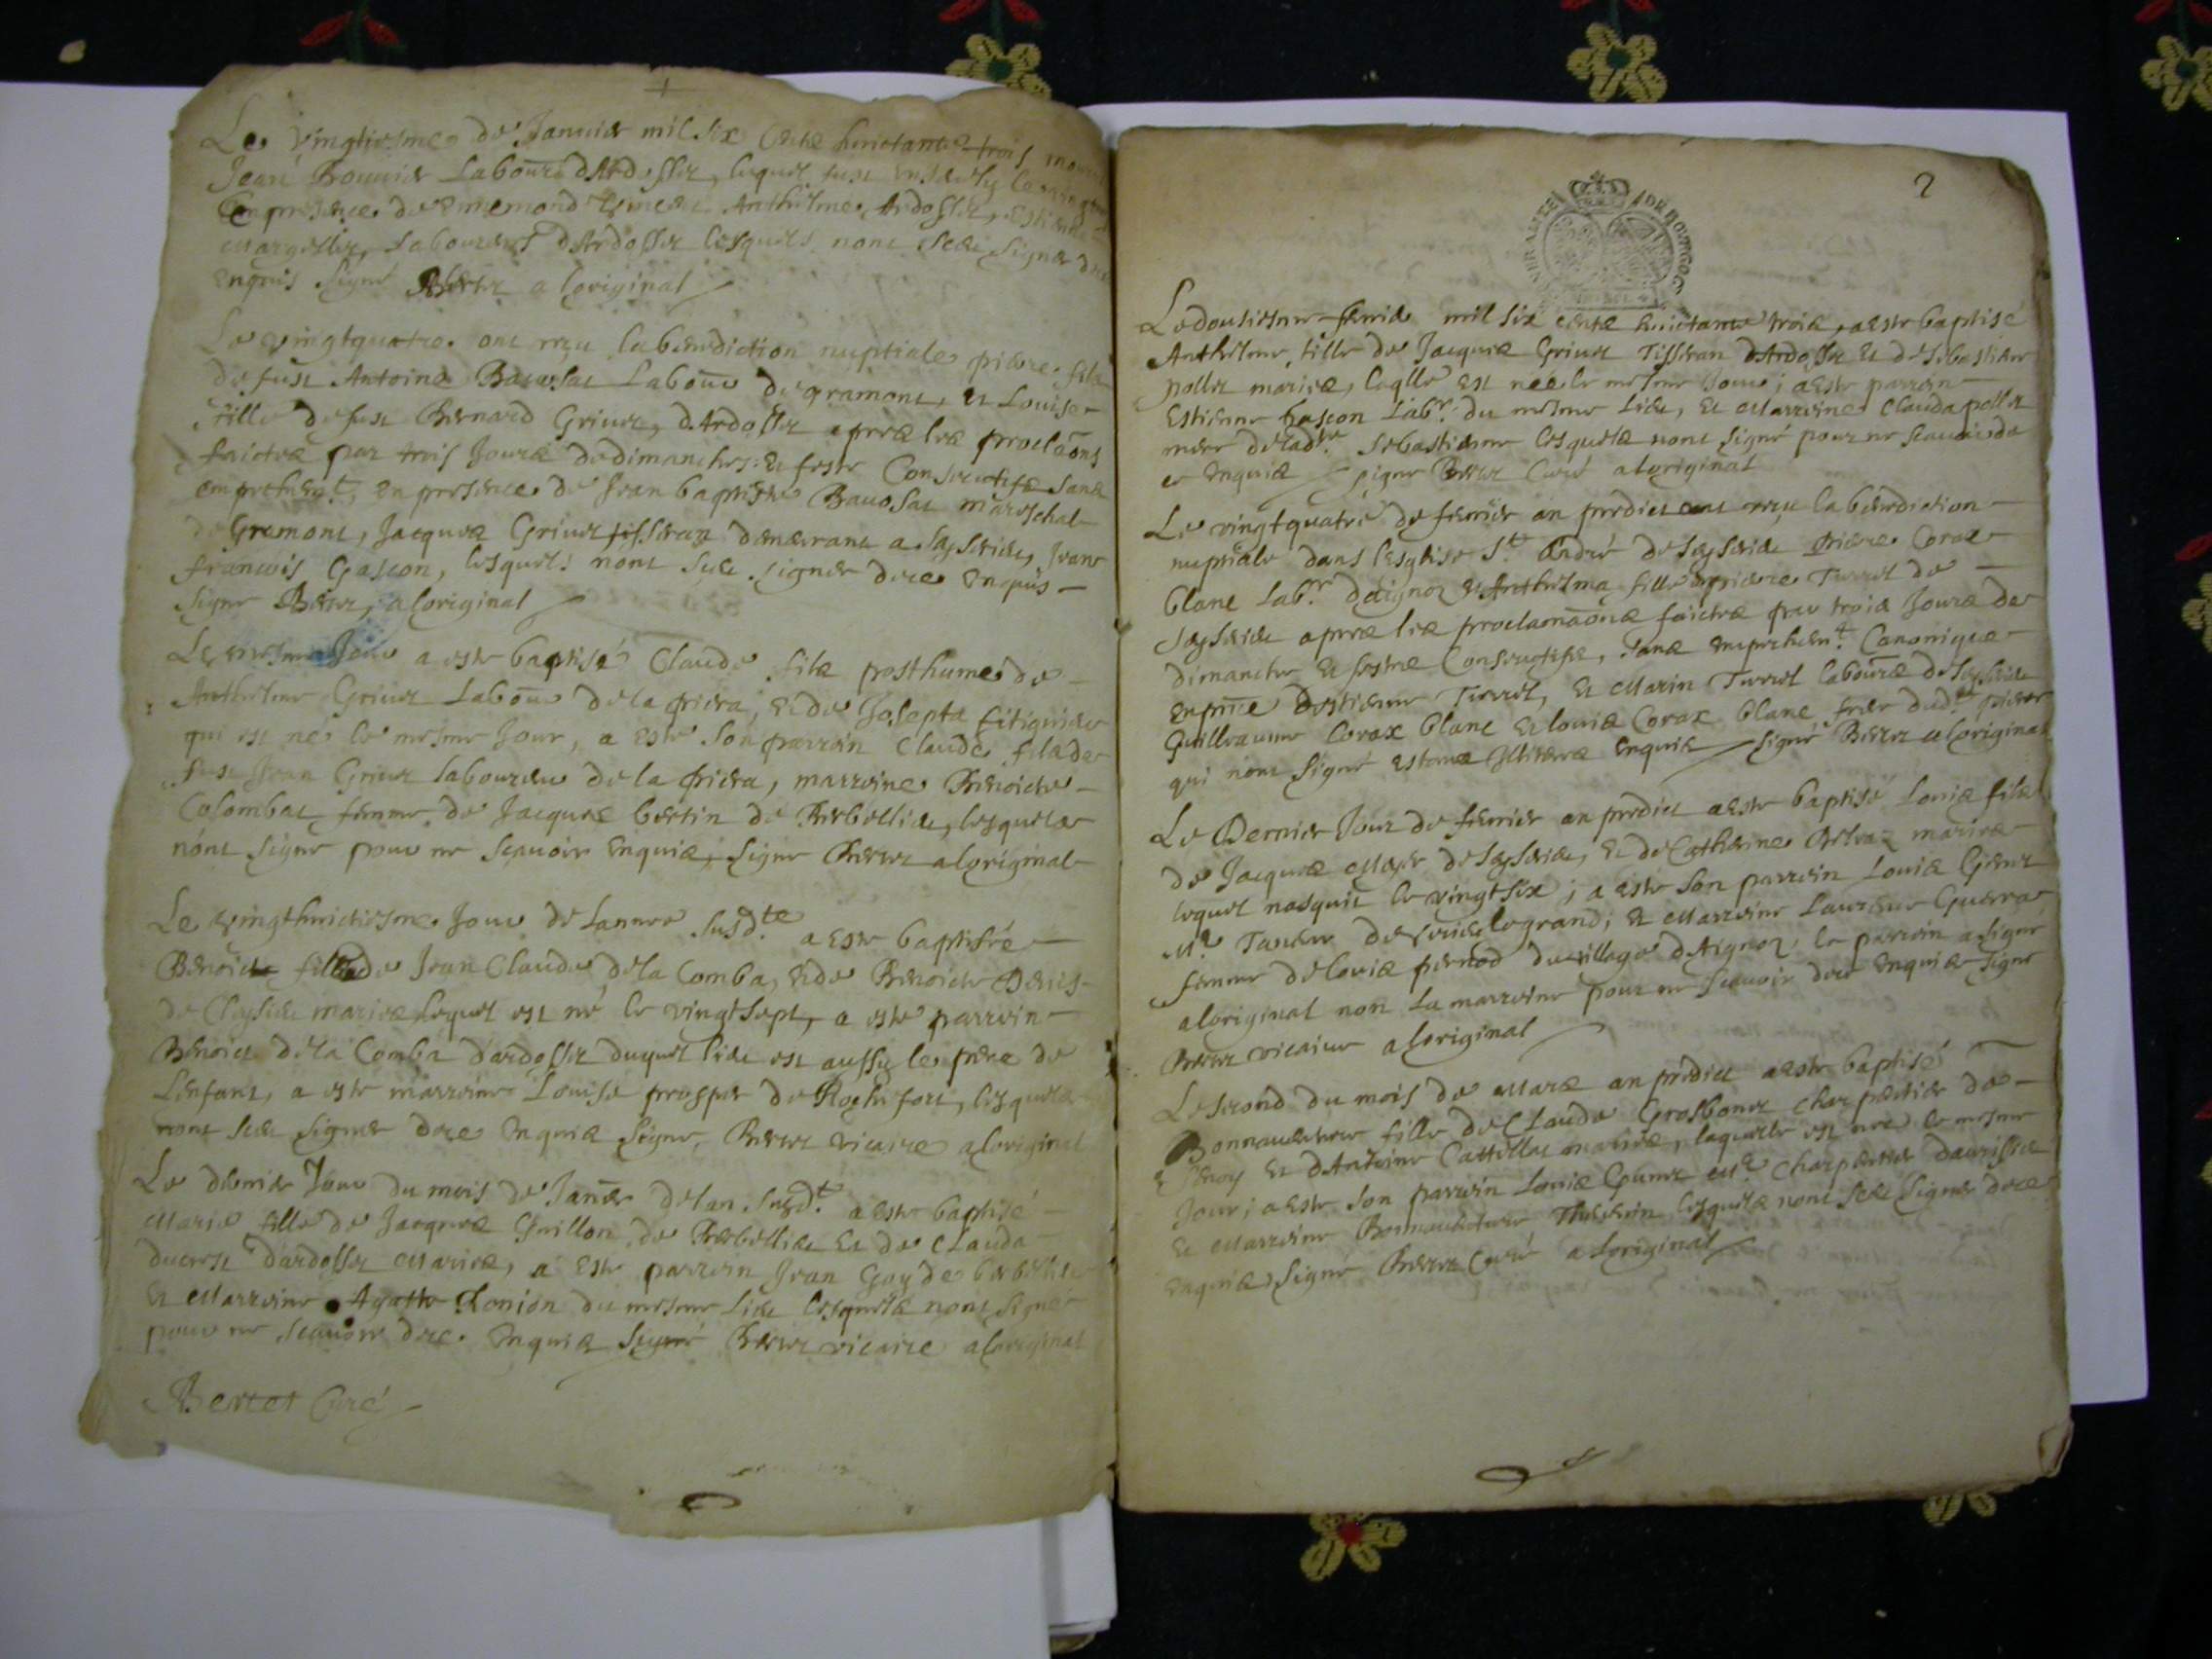 Le vingtiesme de Januier mil six cents huictante trois mourut
Jean Bouuier Labour d'Ardosset, lequel fust enseuely le vingt
En presence de Ennemond Anthelme Ardosset, Estienne
Margollier, Laboureurs d'Ardosset lesquels nont sceu signer de ce
enquis signé Bertet a loriginal
Le vingtquatre ont reçu la benediction nuptiale pierre fils
de fust Antoine Bauosat Labour de gramont, et Louise
fille de fust Bernard Griuet, d'Ardosset apres les proclaons
faictes par trois Jours de dimanches et feste Consecutifs sans
empechemt, en presence de Jean baptiste Bauosat mareschal
de Gramont, Jacques Griuet tisseran demeurant a Seyserieu, Jean
francois Gascon, lesquels nont sceu signer de ce enquis
signe Bertet, a loriginal
Le mesme Jour a este baptisé Claude fils posthume de
Anthelme Griuet Labour de la friera, et de Josepta fitignieu
qui est né le mesme Jour, a este son parrein Claude fils de
fust Jean Griuet laboureur de la friera, marreine Benoiete
Colombat femme de Jacques bertin de Berbellieu, lesquels
nont signe pour ne scauoir enquis, signe Bertet a loriginal
Le vingthuictiesme Jour de Lannee susd.te a este baptisée
Benoiet fils de Jean Claude de la Comba, et de Benoiete Denis
de Cleyzieu mariés lequel est né le vingtsept, a este parrein
Benoiet de la Comba dardosset duquel lieu est aussy le pere de
Lenfant, a este marreine Louise prosper de Rochefort, lesquels
nont sceu signer de ce enquis signe, Bertet vicaire a loriginal
Le dernier Jour du mois de Januier de lan susd.t a este baptisé
Marie fille de Jacques Guillon de Berbellieu et de Clauda
ducrest dardosset Mariés, a este parrein Jean Gay de berbellieu
et Marreine Agatte du mesme lieu lesquels nont signé
pour ne scauoir de ce enquis signé Bertet vicaire a loriginal
Bertet Curé
2
GENERALITE DE BOVRGOG
Le dousiesme feurier mil six cents huictante trois, a este baptisé
Anthelme, fille de Jacques Griuet Tisseran d'Ardosset et de Sebastiane
pollet mariés, laqlle est née le mesme Jour; a este parrein
Estienne Gascon Lab.r du mesme lieu, et Marreine Clauda pollet
mere de lad.te Sebastienne lesquels nont signé pour ne scauoir de
ce enquis signe Bertet Curé a loriginal
Le vingtquatre de feurier an predict ont reçu la benediction
nuptiale dans lesglise S.t André de Seyserieu pierre Corax
blanc lab.r daignoz et Anthelma fille de pierre Turrel de
Seyserieu apres les proclamaons faictes par trois Jours de
dimanche et festes Consecutifs, sans empechem.t Canonique
en pnce destienne Turrel, et Marin Turrel labours de Seyserieu
Guilleaume Corax blanc et louis Corax blanc frere dud.t pierre
qui nont signé estans Illiteres enquis signé Bertet a loriginal
Le Dernier Jour de feurier an predict a este baptisé Louis fils
de Jacques Mayer de Seyserieu, et de Catherine mariés
lequel nasquit le vingtsix; a este son parrein Louis Genet
M.e Taneur de Virieu le grand; et Marreine Laurence Guerra
femme de louis pernod du village d'Aignoz, le parrein a signé
a loriginal non la marreine pour ne scauoir de ce enquis signe
Bertet vicaire a loriginal
Le second du mois de Mars an predict a este baptisé
Bonnauenture fille de Claude Grosbonet charpentier de
et d'Antoine Cattellat mariés, laquelle est nee le mesme
Jour; a este son parrein Louis M.e Charpentier
et Marreine Bonnauenture lesquels nont sceu signer de ce
enquis signé Bertet Curé a loriginal